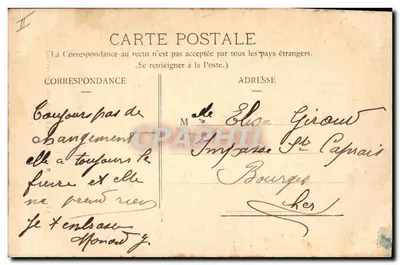 II
CARTE POSTALE
La Correspondance au recto n'est pas acceptée par tous les pays étrangers.
(Se renseigner à la Poste.)
CORRESPONDANCE
ADRESSE
Toujours pas de
changement
elle a toujours la
fièvre et elle
ne prend rien
Je t'embrasse
M elle Elise Giroud
Impasse St Caprais
Bourges
Cher
CPAPHIL